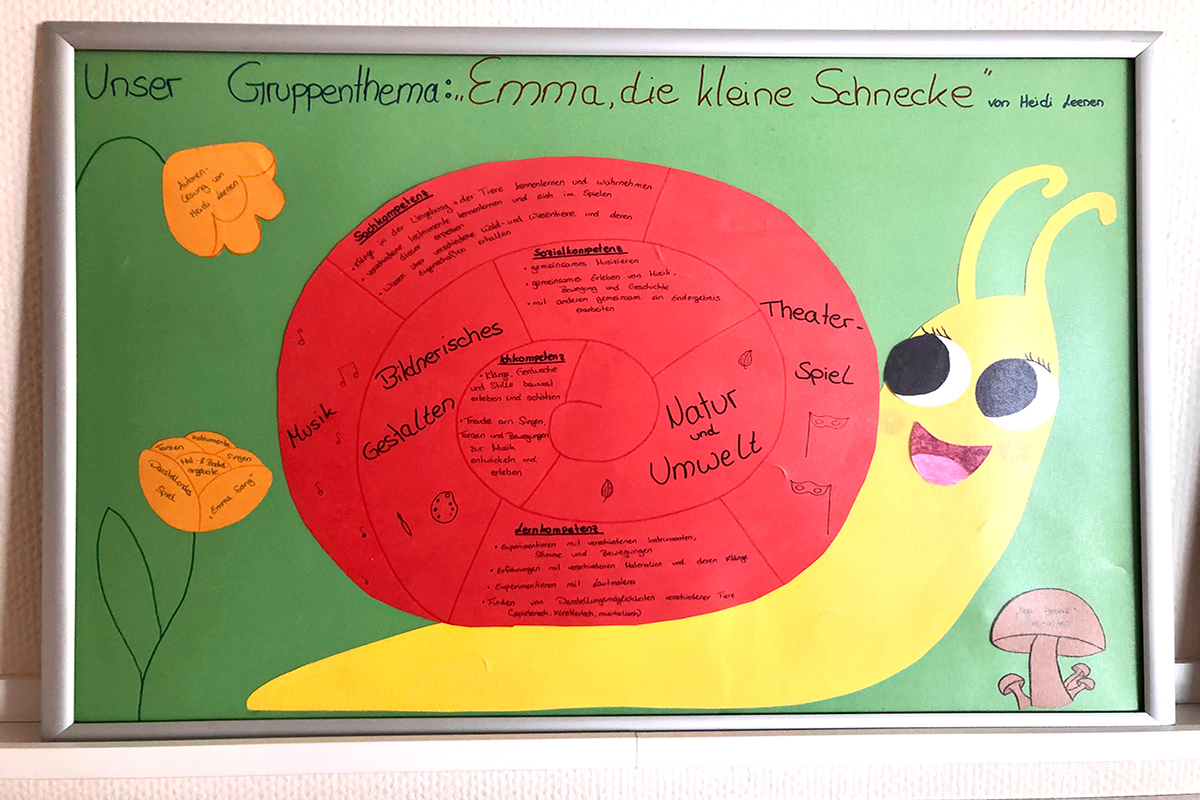 Unser Gruppenthema: „Emma, die kleine Schnecke" von Heidi Leenen
Autoren-
Lesung von
Heidi Leenen
Sachkompetenz
• Klänge in der Umgebung + der Tiere kennenlernen und wahrnehmen
• verschiedene Instrumente kennenlernen und sich im Spielen
dieser erproben
• Wissen über verschiedene Wald- und Wiesentiere und deren
Eigenschaften erhalten
Sozialkompetenz
• gemeinsames Musizieren
• gemeinsames Erleben von Musik,
Bewegung und Geschichte
• mit anderen gemeinsam ein Endergebnis
erarbeiten
Theater-
Spiel
Musik
Bildnerisches
Gestalten
Ichkompetenz
• Klänge, Geräusche
und Stille bewusst
erleben und schätzen
• Freude am Singen,
Tanzen und Bewegungen
zur Musik
entwickeln und
erleben
Natur
und
Umwelt
Lernkompetenz
• Experimentieren mit verschiedenen Instrumenten,
Stimme und Bewegungen
• Erfahrungen mit verschiedenen Materialien und deren Klänge
• Experimentieren mit Lautmalerei
• Finden von Darstellungsmöglichkeiten verschiedener Tiere
(spielerisch, künstlerisch, musikalisch)
Tanzen
Instrumente
Singen
Mal- & Bastel-
angebote
Darstellendes
Spiel
"Emma Song"